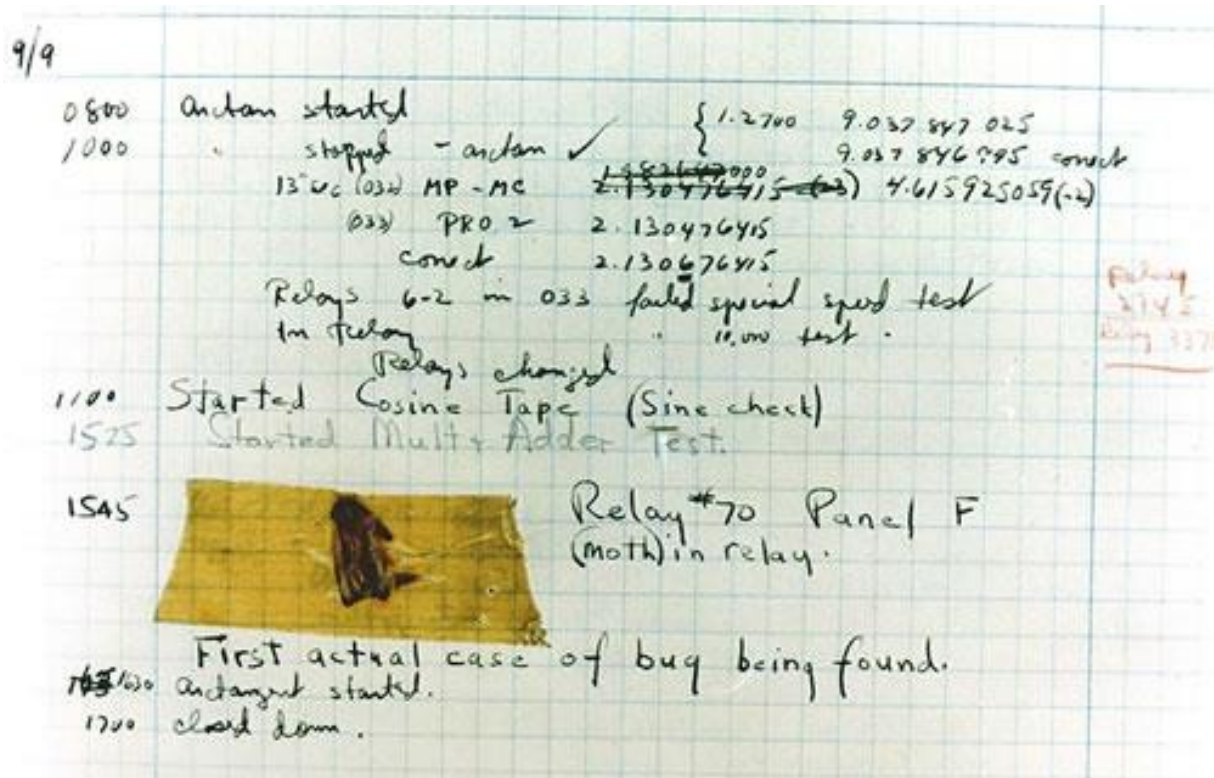 9/9
0800 arctan started { 1.2700 9.037 847 025
1000 " stopped - arctan ✓ 9.037 846 995 correct
13"uc (032) MP - MC 1.982647000 2.130476415 (-3) 4.615925059(-2)
(033) PRO 2 2.130476415
correct 2.130676415
Relays 6-2 in 033 failed special speed test
In Relay " 10,000 test .
Relay
2145
Relay 337
Relays changed
1100 Started Cosine Tape (Sine check)
1525 Started Mult + Adder Test.
1545 Relay #70 Panel F
(moth) in relay.
First actual case of bug being found.
1630 arctangent started.
1700 closed down.